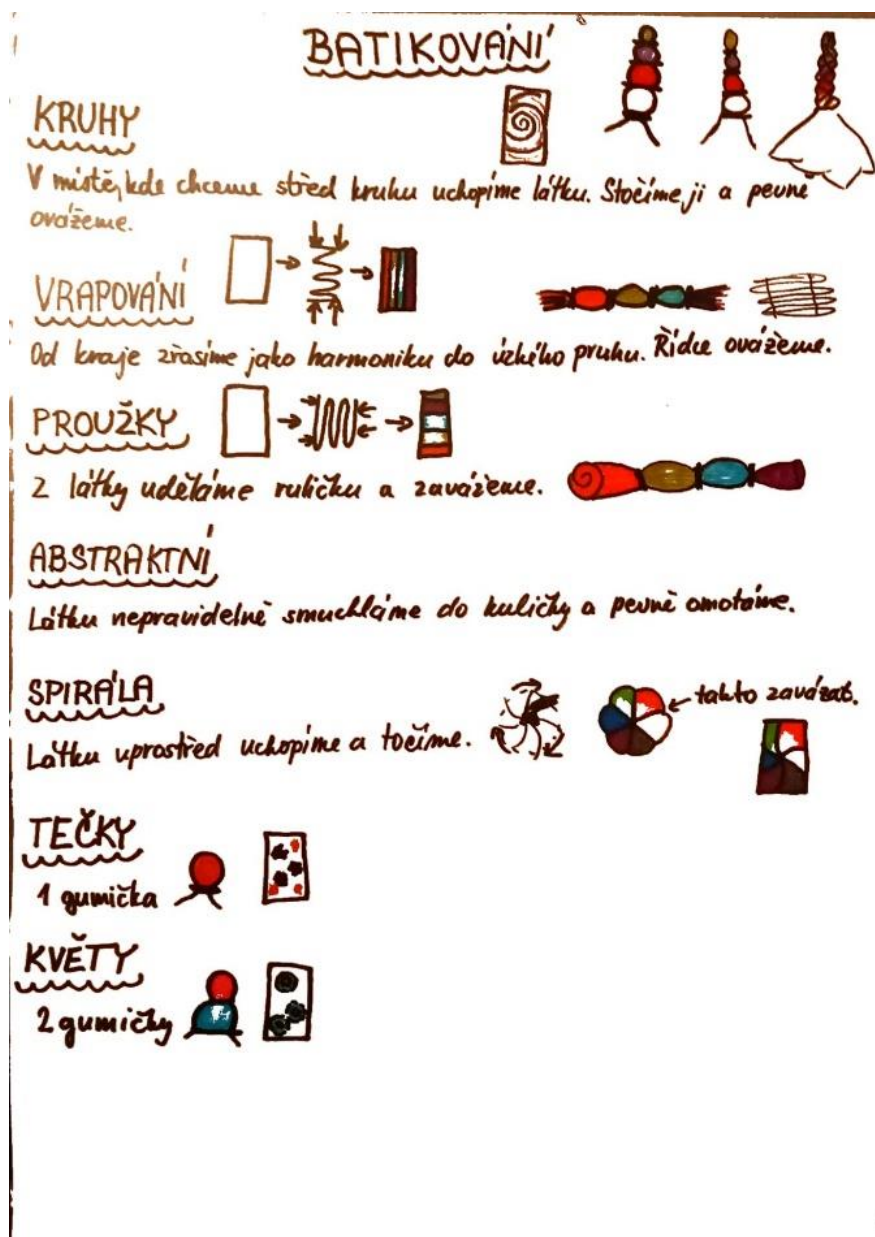 BATIKOVÁNÍ
KRUHY
V místě, kde chceme střed kruhu uchopíme látku. Stočíme ji a pevně
ovážeme.
VRAPOVÁNÍ
Od kraje zřasíme jako harmoniku do úzkého pruhu. Řídce ovážeme.
PROUŽKY
Z látky uděláme ruličku a zavážeme.
ABSTRAKTNÍ
Látku nepravidelně smuchláme do kuličky a pevně omotáme.
SPIRÁLA
takto zavázat.
Látku uprostřed uchopíme a točíme.
TEČKY
1 gumička
KVĚTY
2 gumičky